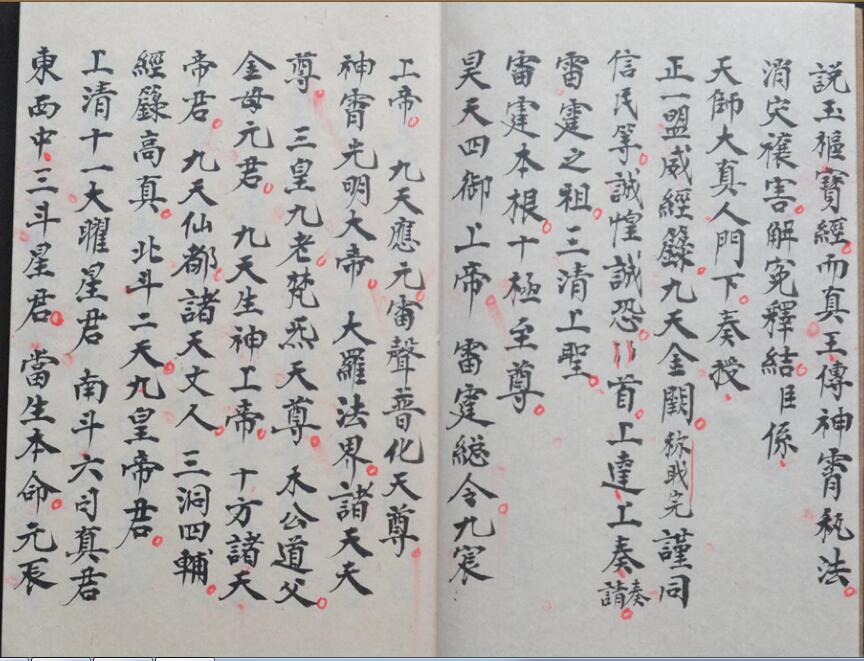 說玉樞寶經而真王傳神霄秘法
消灾禳害解冤釋結臣係
天師大真人門下奏授
正一盟威經籙九天金闕称職完謹同
信民等誠惶誠恐〻首上達上奏奏請
雷霆之祖三清上聖
雷霆本根十極至尊
昊天四御上帝 雷霆總令九宸
上帝 九天應元雷聲普化天尊
神霄光明大帝 大羅法界諸天天
尊 三皇九老梵炁天尊 木公道父
金母元君 九天生神上帝 十方諸天
帝君 九天仙都諸天丈人 三洞四輔
經籙高真 北斗二天九皇帝君
上清十一大曜星君 南斗六司真君
東西中三斗星君 當生本命元辰